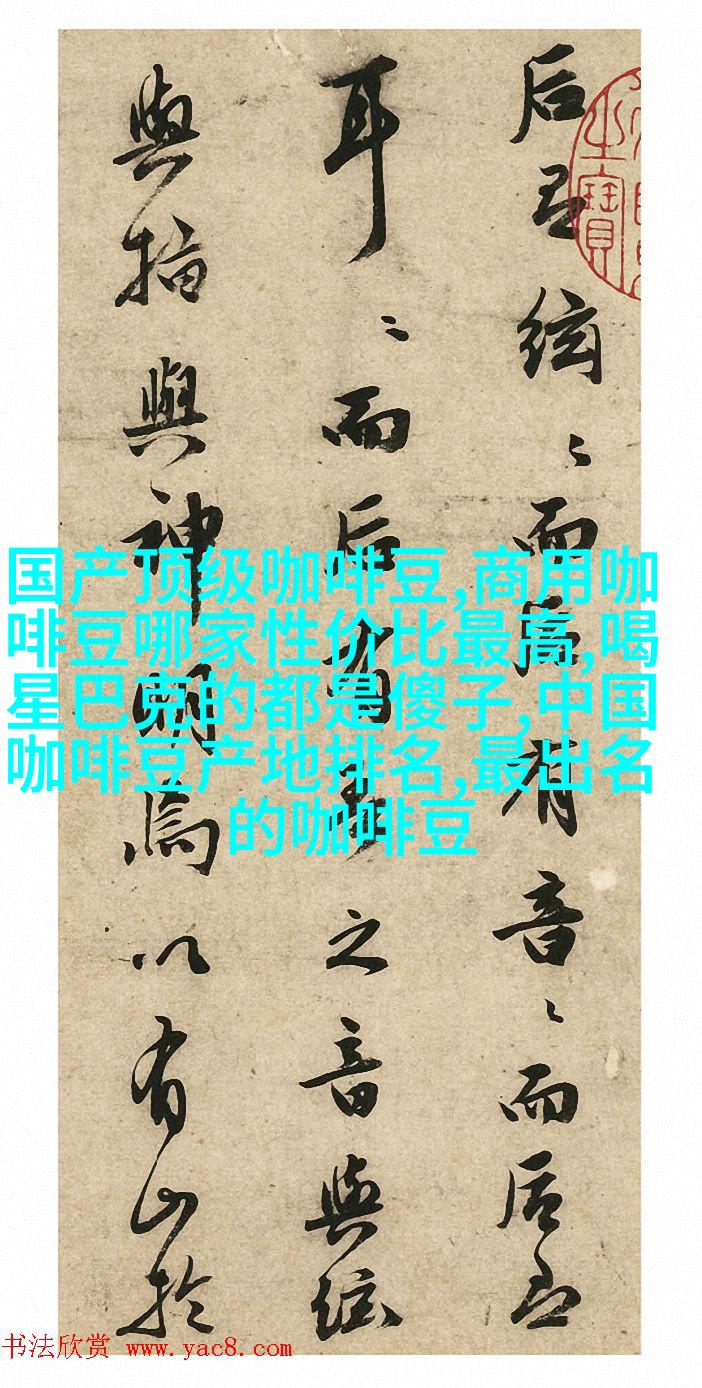 后絃〻而后有音〻而后
耳〻而后有之音與絃
與指與神明焉以有山於
之寶
国产顶级咖啡豆,商用咖
啡豆哪家性价比最高,喝
星巴克的都是傻子,中国
咖啡豆产地排名,最出名
的咖啡豆
书法欣赏 www.yac8.com